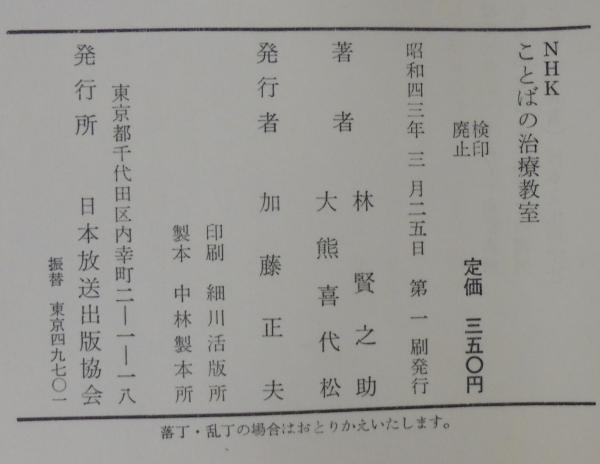 NHK
ことばの治療教室
検印
廃止
定価 三五〇円
昭和四三年三月二五日 第一刷発行
著者 林賢之助
大熊喜代松
発行者 加藤正夫
印刷 細川活版所
製本 中林製本所
東京都千代田区内幸町二―一―一八
発行所 日本放送出版協会
振替 東京四九七〇一
落丁・乱丁の場合はおとりかえいたします。